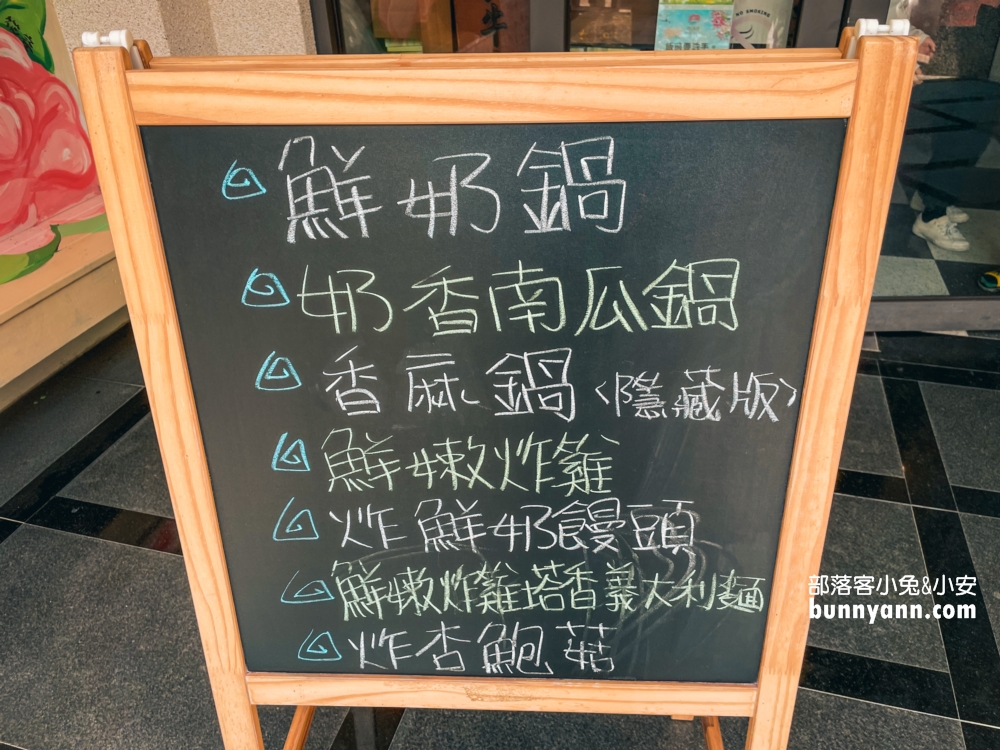 NO SMOKING
鮮奶鍋
奶香南瓜鍋
香麻鍋<隱藏版>
鮮嫩炸雞
炸鮮奶饅頭
鮮嫩炸雞塔香義大利麵
炸杏鮑菇
部落客小兔&小安
bunnyann.com